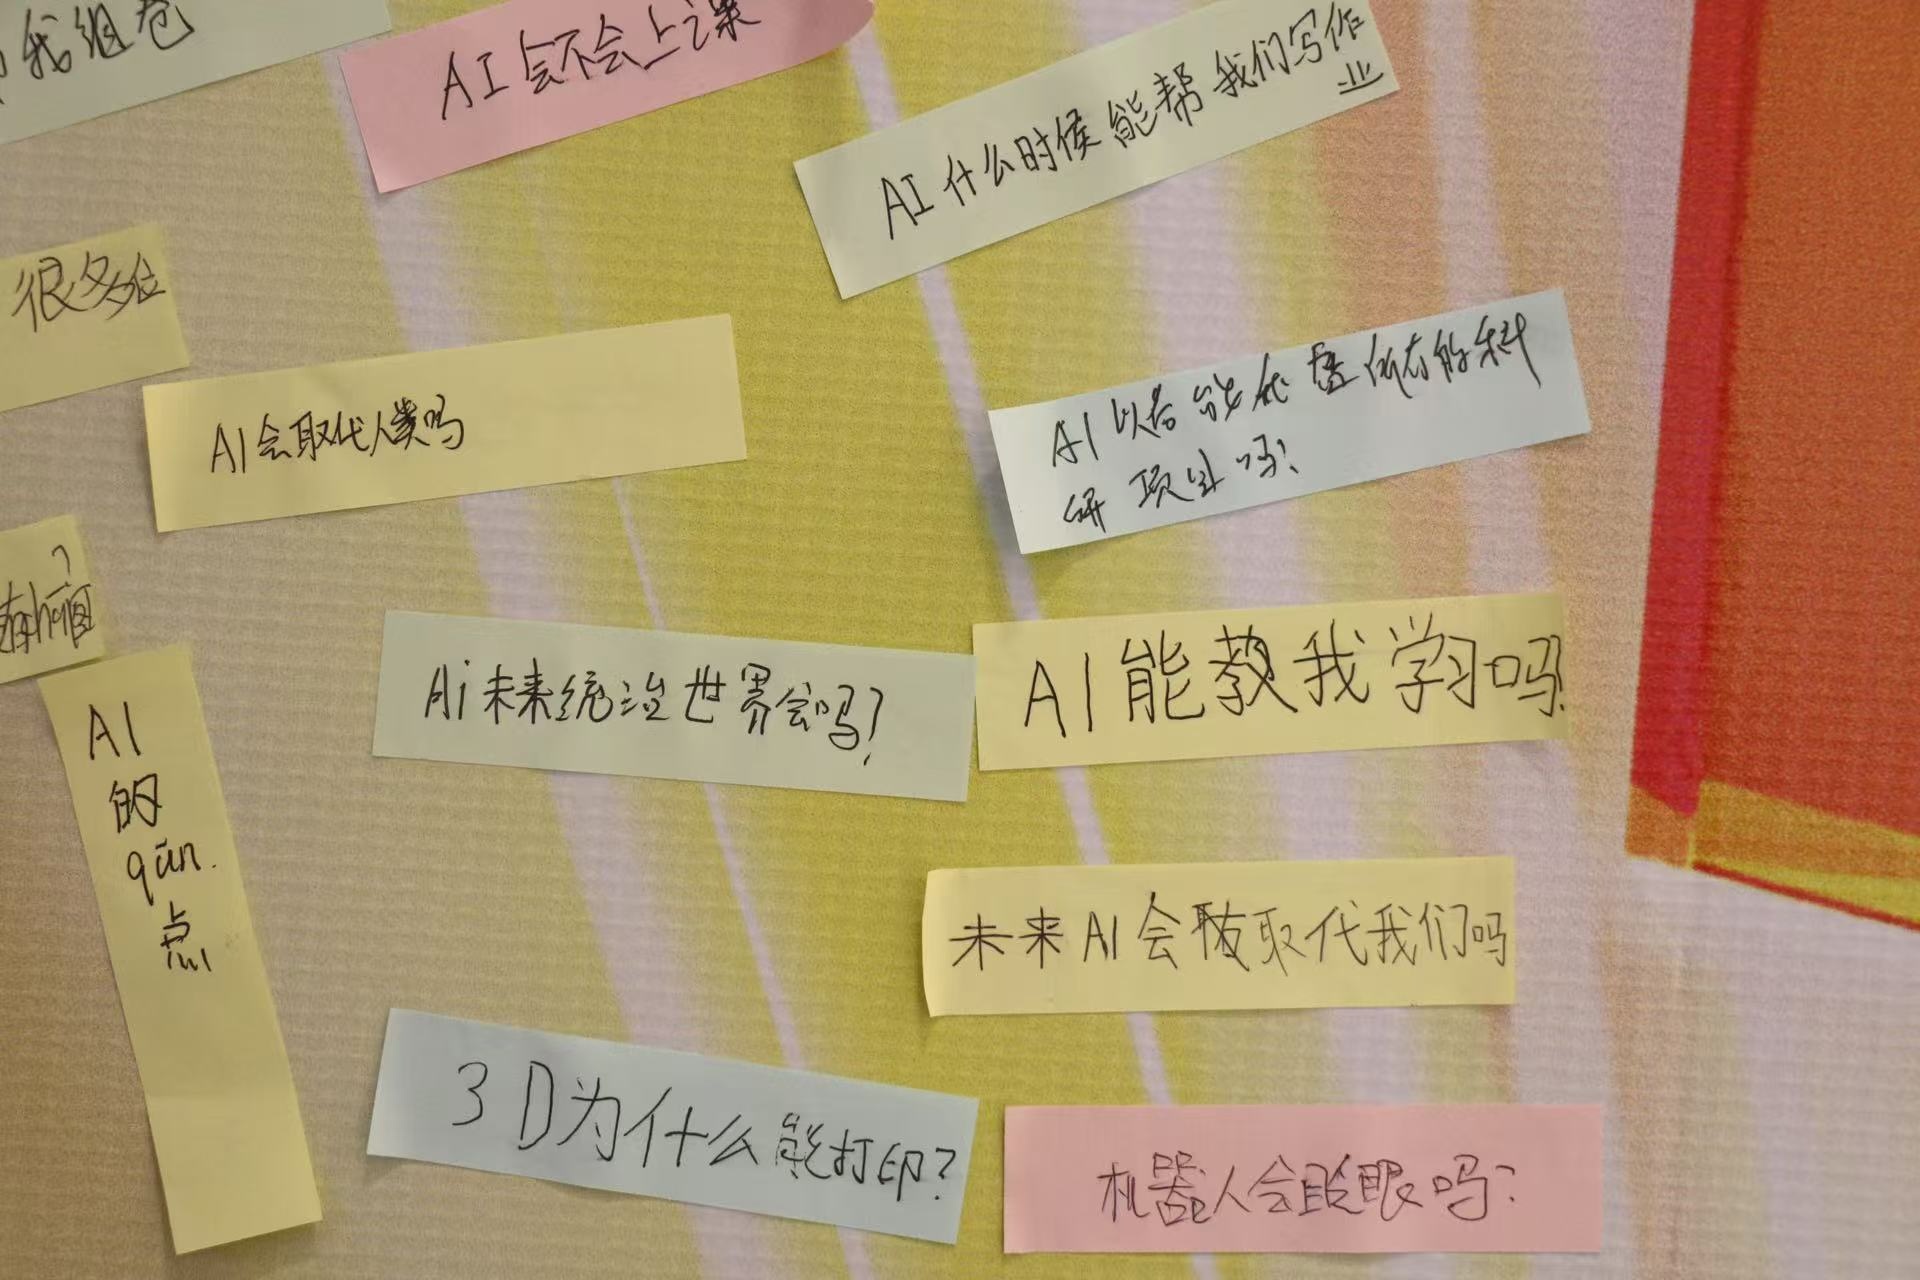 我组卷
AI会不会上课
AI什么时侯能帮我们写作
业
很多位
AI会取代人类吗
AI以后能代替所有的科
研项目吗?
?
Ai未来统治世界会吗?
AI能教我学习吗?
AI
的
qūn.
点
未来AI会取代我们吗
3D为什么能打印?
机器人会眨眼吗?